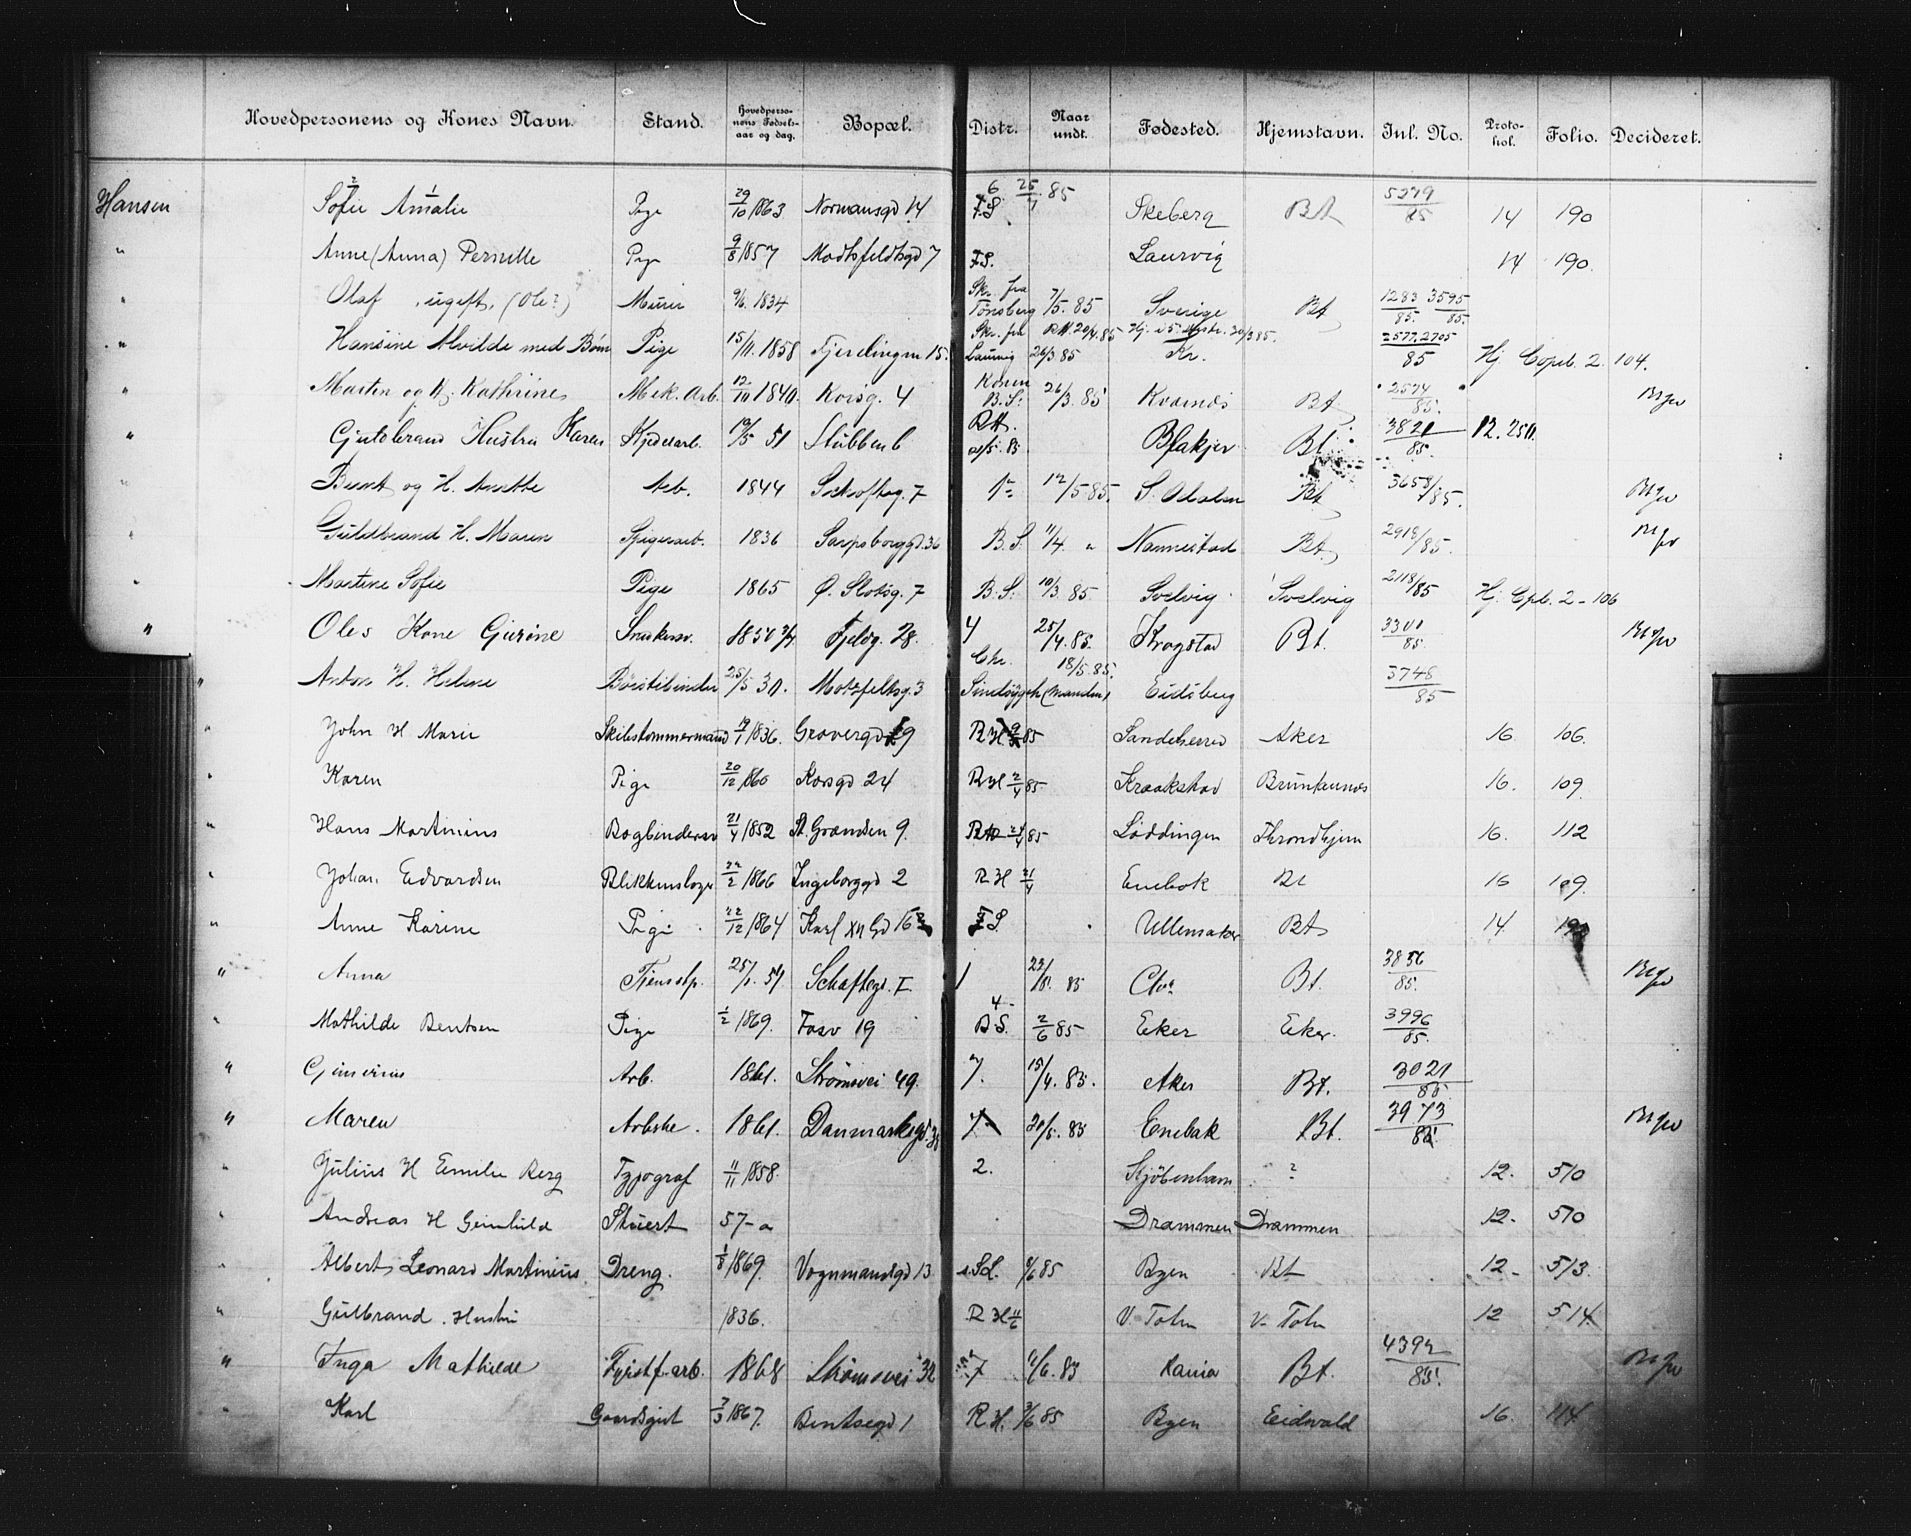 Hovedpersonens og Kones Navn. Stand. Hovedperso-nens Fødsels-aar og dag. Bopæl. Distr. Naar undt. Fødested. Hjemstavn. Inl. No. Proto-kol. Folio. Decideret.
Hansen Sofie Amalie Pige 29/10 1863 Normansgd 14 F.S. 6 25/1 85 Skeberg Bt 5279/85 14 190
" Anne (Anna) Pernille Pige 9/8 1857 Modtsfeldtsgd 7 F.S. Laurvig 14 190.
" Olaf, ugift, (Ole?) Murer 9/6. 1834 Skr. fra Tønsberg 7/5. 85 Sverige Bt 1283/85. 3595/85.
" Hansine Alvilde med Børn Pige 15/11. 1858 Fjerdingen 15. Skr. fra Laurvig 26/3 85 Kr. 2577.2705/85 Hj. Copb. 2. 104.
" Martin og H. Kathrine Mek. Arb. 12/10 1840. Korsg. 4 Konen B.S. 26/3. 85 Kvarnes Bt 2574/85.
" Gjulobrand Hustru Karen Kjørearb. 19/5 51 Stubben 6 Blakjer Bt. 3821/85. 12. 250.
" Bernt og H. Anette Arb. 1844 7 12/5 85. S. Odalen Bt 3658/85.
" Guldbrand H. Maren Spigerarb. 1836 Sarpsborggd. 36 B.S. 11/4. " Nannestad Bt. 2918/85.
" Martine Sofie Pige 1865 Ø. Slotsg. 7 B.S. 10/3. 85. Svelvig Svelvig 2118/85 Hj. Cpb. 2 - 106
" Oles Kone Gurine Snekkersv. 1857 Fjeldg. 28. 4 25/4. 85. Kragstad Bt. 3301/85.
" Anton H. Helene Børstebinder 25/5 30. Motzfeltsg. 3 Chr. Sindsygeh. (manden) 18/5. 85. Eidsberg 3748/85
" John H Marie Skibstømmermand 19/1 1836. Gravergd 9 R H 85 Sandeherred Aker 16 106.
" Karen Pige 20/12 1860 Korsgd 24 R H 2/4 85 Kraakstad Brunkenæs 16. 109.
" Hans Martinius Bogbindersv 21/4 1852 St. Grændsen 9. R H 85 Løddingen Throndhjem 16. 112
" Johan Edvardsen Blikkenslager 22/2 1866 Ingeborggd 2 R H 21/4 Enebak Bt 16 109.
" Anne Karine Pige 22/12 1864 Karl XII Gd 16 S. Ullensaker Bt 14 190
" Anna Tjenestp. 25/1. 51 Schaftegd. 7 1 85 Chra Bt. 3856/85.
" Mathilde Bentsen Pige 1/2 1869. Fosv 19 4 B S. 2/6 85 Eker Eker. 3996/85.
" Ginerius Arb. 1861. Strømsvei 49. 7. 15/4. 85. Aker Bt. 3021/85
" Maren Arbske. 1861. Danmarksgd. 38 7 21/5. 85 Enebak Bt. 3973/85
" Julius H Emilie Berg Typograf 11/11 1858. 2. Kjøbenhavn ? 12. 510
" Andreas H Gunhild Skuert 57- a Drammen Drammen 12. 510
" Albert Leonard Martinius Dreng. 1/8 1869. Vognmandsgd 13 S.L. 9/6 85 Byen Bt 12- 513.
" Gulbrand. Hustru 1836. R H 11/6 V. Toten V. Toten 12 514.
" Inga Mathilde Fyrstf.arb. 1868 Strømsvei 32 7 11/6. 85 Kania Bt. 4392/85.
" Karl Gaardsgut 7/3 1867. Bentsegd 1 R H. 3/6 85 Byen Eidsvold 16. 114